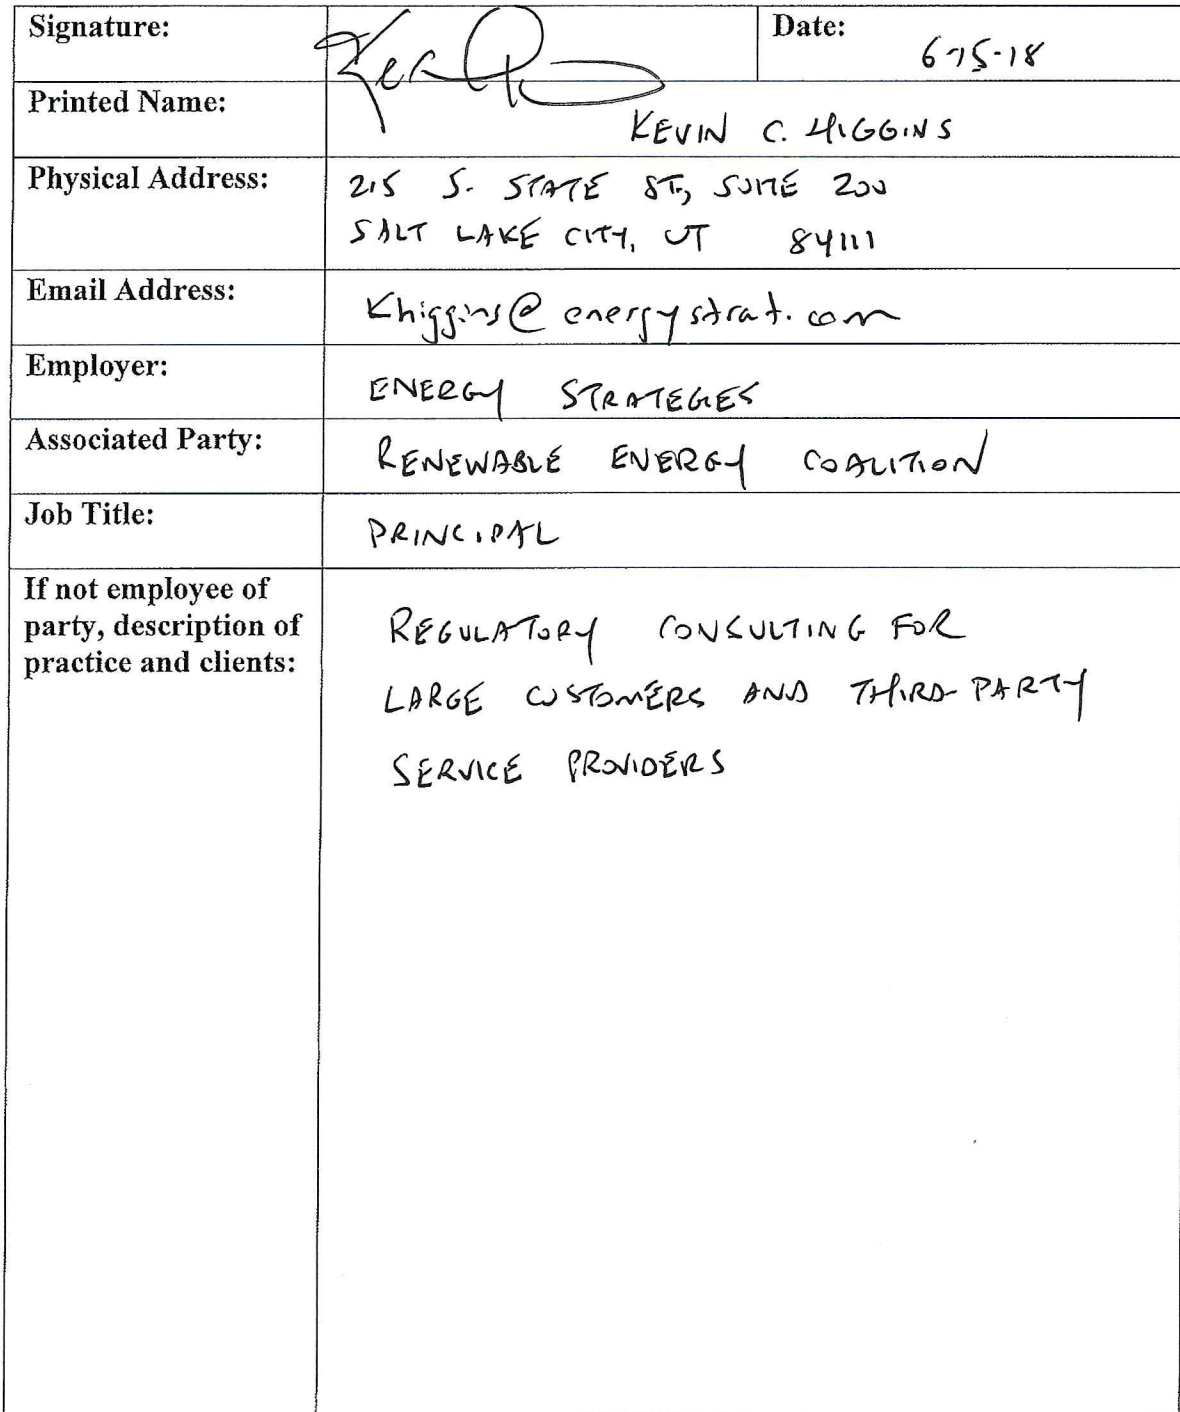 Signature:
Date: 6-15-18
Printed Name: KEVIN C. HIGGINS
Physical Address: 215 S. STATE ST, SUITE 200
SALT LAKE CITY, UT 84111
Email Address: Khiggins@energystrat.com
Employer: ENERGY STRATEGIES
Associated Party: RENEWABLE ENERGY COALITION
Job Title: PRINCIPAL
If not employee of
party, description of
practice and clients:
REGULATORY CONSULTING FOR
LARGE CUSTOMERS AND THIRD-PARTY
SERVICE PROVIDERS